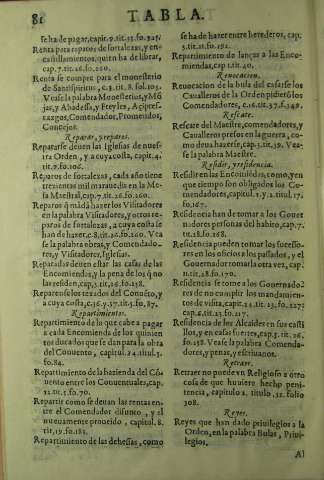 81
TABLA.
se ha de pagar, capit. 9. tit. 35. fo. 325.
Renta para reparos de fortalezas, y en-
castillamientos, quien ha de librar,
cap. 7. tit. 26. fo. 260.
Renta se compre para el monesterio
de Santispiritus, c. 3. tit. 8. fol. 105.
Vease la palabra Monesterios, y
jas, y Abadessa, y Freyles, Acipres-
tazgos, Comendador, Promendos,
Concejos.
Reparar, y reparos.
Repararse deuen las Iglesias de nues-
tra Orden, y a cuya costa, capit. 4.
tit. 7. fo. 106.
Reparos de fortalezas, cada año tiene
trezientas mil marauedis en la Me-
sa Maestral, cap. 7. tit. 26. fo. 260.
Reparos q̃ mãda hazer los Visitadores
en la palabra Visitadores, y otros re-
paros de fortalezas, a cuya costa se
han de hazer, c. 8. tit. 26. fo. 260. Vea
se la palabra obras, y Comendado-
res, y Visitadores, Iglesias.
Reparadas deuen estar las casas de las
Encomiendas, y la pena de los q̃ no
las residen, cap. 3. tit. 26. fo. 258.
Repartense los texados del Conuẽto, y
a cuya costa, c. 36. y 37. tit. 5. fo. 87.
Repartimientos.
Repartimiento de lo que cabe a pagar
a cada Encomienda de los quinien
tos ducados que se dan para la obra
del Conuento, capitul. 24. titul. 5.
fo. 84.
Repartimiento de la hazienda del Cõ
uento entre los Conuentuales, cap.
12. tit. 5. fo. 70.
Repartir como se deuan las rentas en-
tre el Comendador difunto, y el
nueuamente proueido, capitul. 8.
tit. 19. fo. 181.
Repartimiento de las dehessas, como
se ha de hazer entre herederos, cap.
3. tit. 25. fo. 191.
Repartimiento de lanças a las Enco-
miendas, cap. 1. tit. 40.
Reuocacion.
Reuocacion de la bula del casarse los
Caualleros de la Orden pidiese los
Comendadores, c. 16. tit. 37. f. 342.
Rescate.
Rescate del Maestre, comendadores, y
Caualleros presos en la guerra, co-
mo deua hazerse, cap. 1. tit. 39. Vea-
se la palabra Maestre.
Residir, y residencia.
Residir en las Encomiẽdas, como, y en
que tiempo son obligados los Co-
mendadores, capitul. 1. y 2. titul. 17.
fo. 167.
Residencia han de tomar a los Gouer
nadores personas del habito, cap. 7.
tit. 18. fo. 168.
Residencia pueden tomar los sucesso-
res en los oficios a los passados, y el
Gouernador tomarla otra vez, cap.
11. tit. 18. fo. 170.
Residencia se tome a los Gouernado2
res de no cumplir los mandamien-
tos de visita, capit. 23. tit. 20. fo. 227
cap. 6. tit. 23. fo. 217.
Residencia de los Alcaides en sus casti
llos, y en casas fuertes, cap. 5. tit. 26.
fo. 258. Vease la palabra Comenda-
dores, y penas, y escriuanos.
Retraer.
Retraer no puede vn Religioso a otro
cosa de que huuiere hecho peni-
tencia, capitulo 2. titulo 32. folio
308.
Reyes.
Reyes que han dado priuilegios a la
Orden, en la palabra Bulas, Priui-
legios.
Al